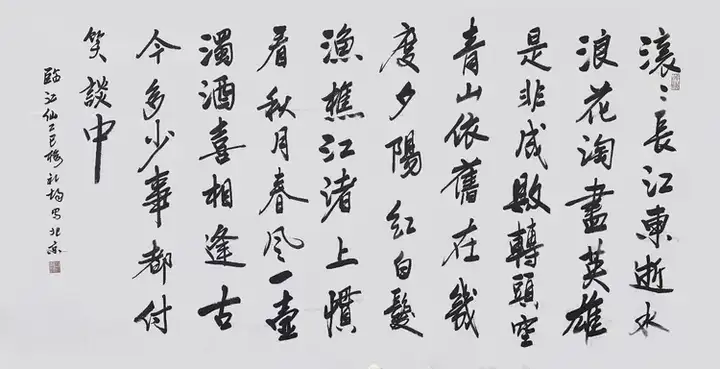 滚〻長江東逝水
浪花淘盡英雄
是非成敗轉頭空
青山依舊在幾
度夕陽紅白髮
漁樵江渚上慣
看秋月春风一壺
濁酒喜相逢古
今多少事都付
笑談中
臨江仙乙巳梅北京